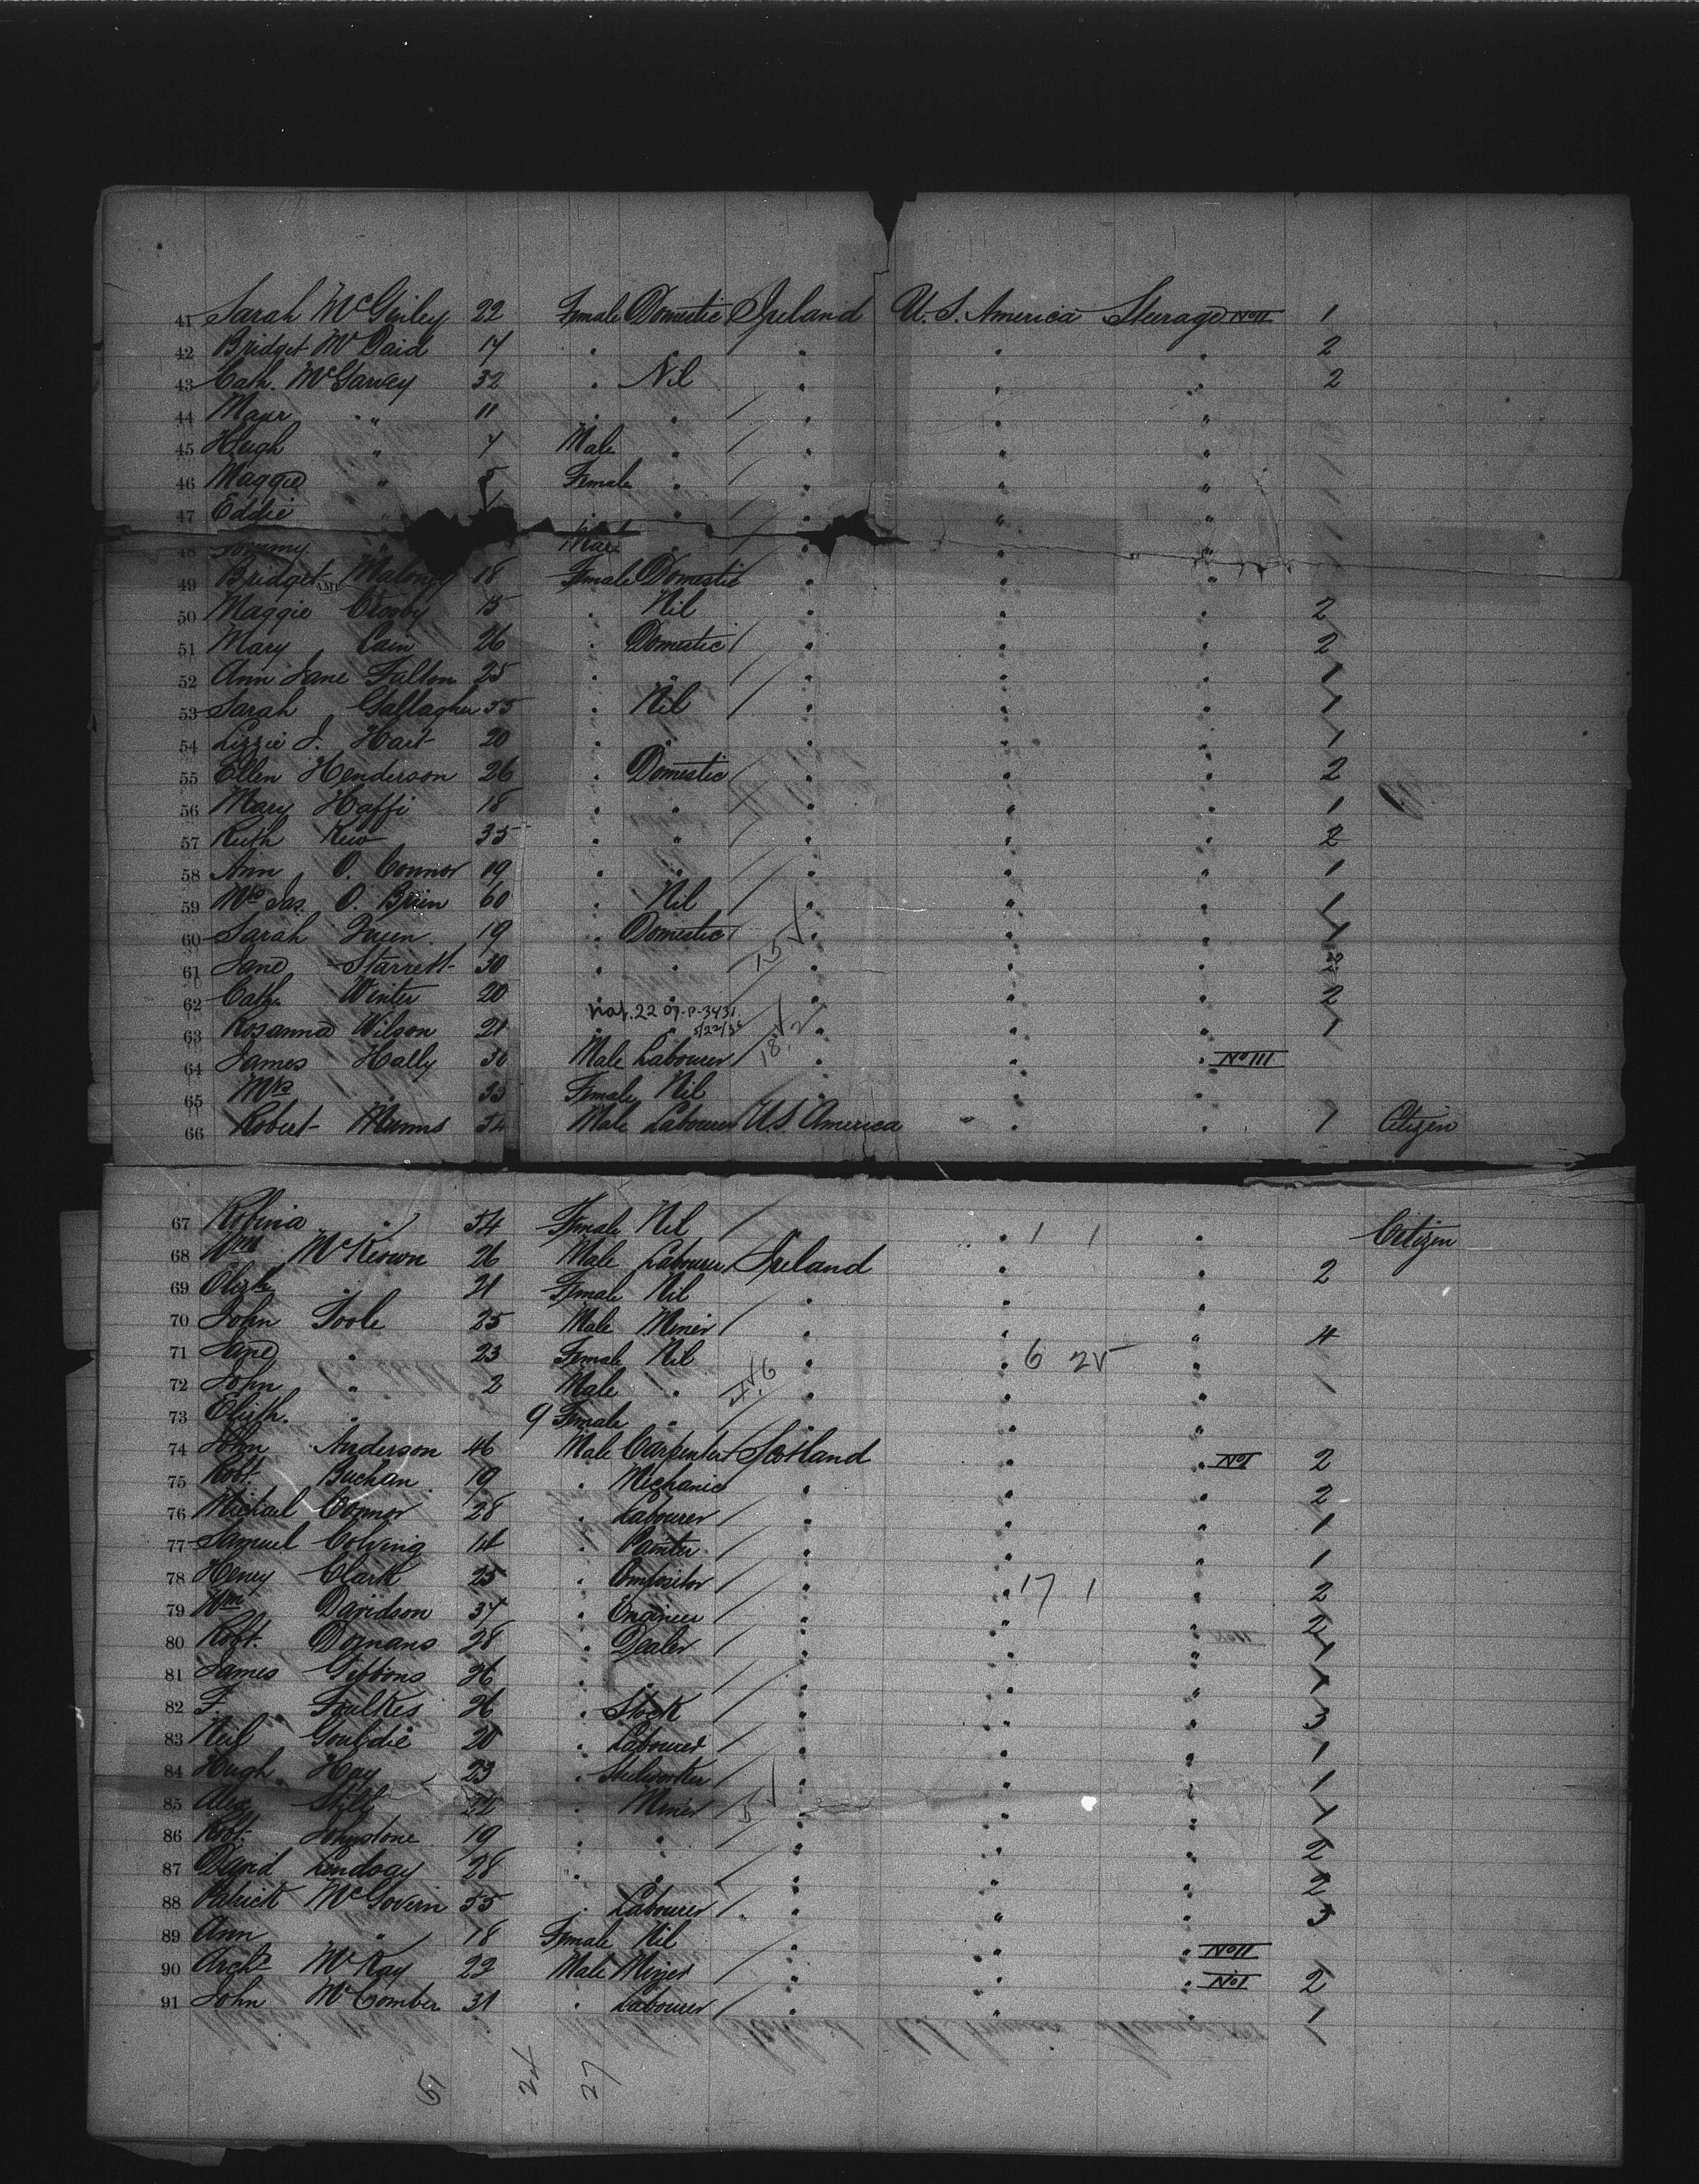 41 Sarah McGinley 22 Female Domestic Ireland U.S. America Steerage No II 1
42 Bridget McDaid 17 " " " " 2
43 Cath. McGarvey 32 " Nil " " " 2
44 " 11 " " " " "
45 Hugh " 7 Male " " " "
46 Maggie " 5 Female " " " "
47 Eddie " " " " "
48 Tommy " " " " "
49 Bridget Maloney 18 Female Domestic " " "
50 Maggie Crosby 15 " Nil " " " 2
51 Mary Cain 26 " Domestic " " " 2
52 Ann Jane Fulton 25 " " " " " 1
53 Sarah Gallagher 55 " Nil " " " 1
54 Lizzie J. Hart 20 " " " " " 1
55 Ellen Henderson 26 " Domestic " " " 2
56 Mary Haffi 18 " " " " " 1
57 Ruth 35 " " " " " 2
58 Ann O. Connor 19 " " " " " 1
59 Mrs Jas. O. Brien 60 " Nil " " " 1
60 Sarah 19 " Domestic " " " 1
61 Jane Starrett 30 " " 15 " " "
62 Cath. Winter 20 " " " " " 2
nat. 22 07-P-3431
5/22/35
63 Rosanna Wilson 21 " " " " " 1
64 James Hally 30 Male Labourer 18 " " " No III
65 Mrs " 33 Female Nil " " "
66 Robert Munns 54 Male Labourer U.S. America " " 1 Citizen
67 Robina " 54 Female Nil " 1 1 " Citizen
68 Wm McKeown 26 Male Labourer Ireland " " 2
69 " 21 Female Nil " " "
70 John Toole 25 Male Miner " " " 4
71 Jane " 23 Female Nil " " 6 25 "
72 John " 2 Male " " " "
73 " 9 Female " " " "
74 John Anderson 46 Male Carpenter Scotland " " No I 2
75 Robt. Buchan 19 " Mechanic " " " 2
76 Michael Connor 28 " Labourer " " " 1
77 Samuel Colving 14 " Painter " " " 1
78 Henry Clark 25 " Compositor " " 17 1 " 2
79 Wm Davidson 37 " Engineer " " " 2
80 Robt. 28 " Dealer " " " 1
81 James Gibbons 26 " " " " " 1
82 F. Foulkes 26 " " " " 3
83 Neil Gouldie 20 " Labourer " " " 1
84 Hugh Hay 23 " Steelworker " " " 1
85 Alex 22 " Miner 5 " " " 1
86 Robt. Johnstone 19 " " " " " 2
87 David Lindsay 28 " " " " " 2
88 Patrick McGovern 55 " Labourer " " " 3
89 Ann " 18 Female Nil " " " No II
90 Archd McKay 23 Male Miner " " " No I 2
91 John McComber 31 " Labourer " " " 1
51 24 27